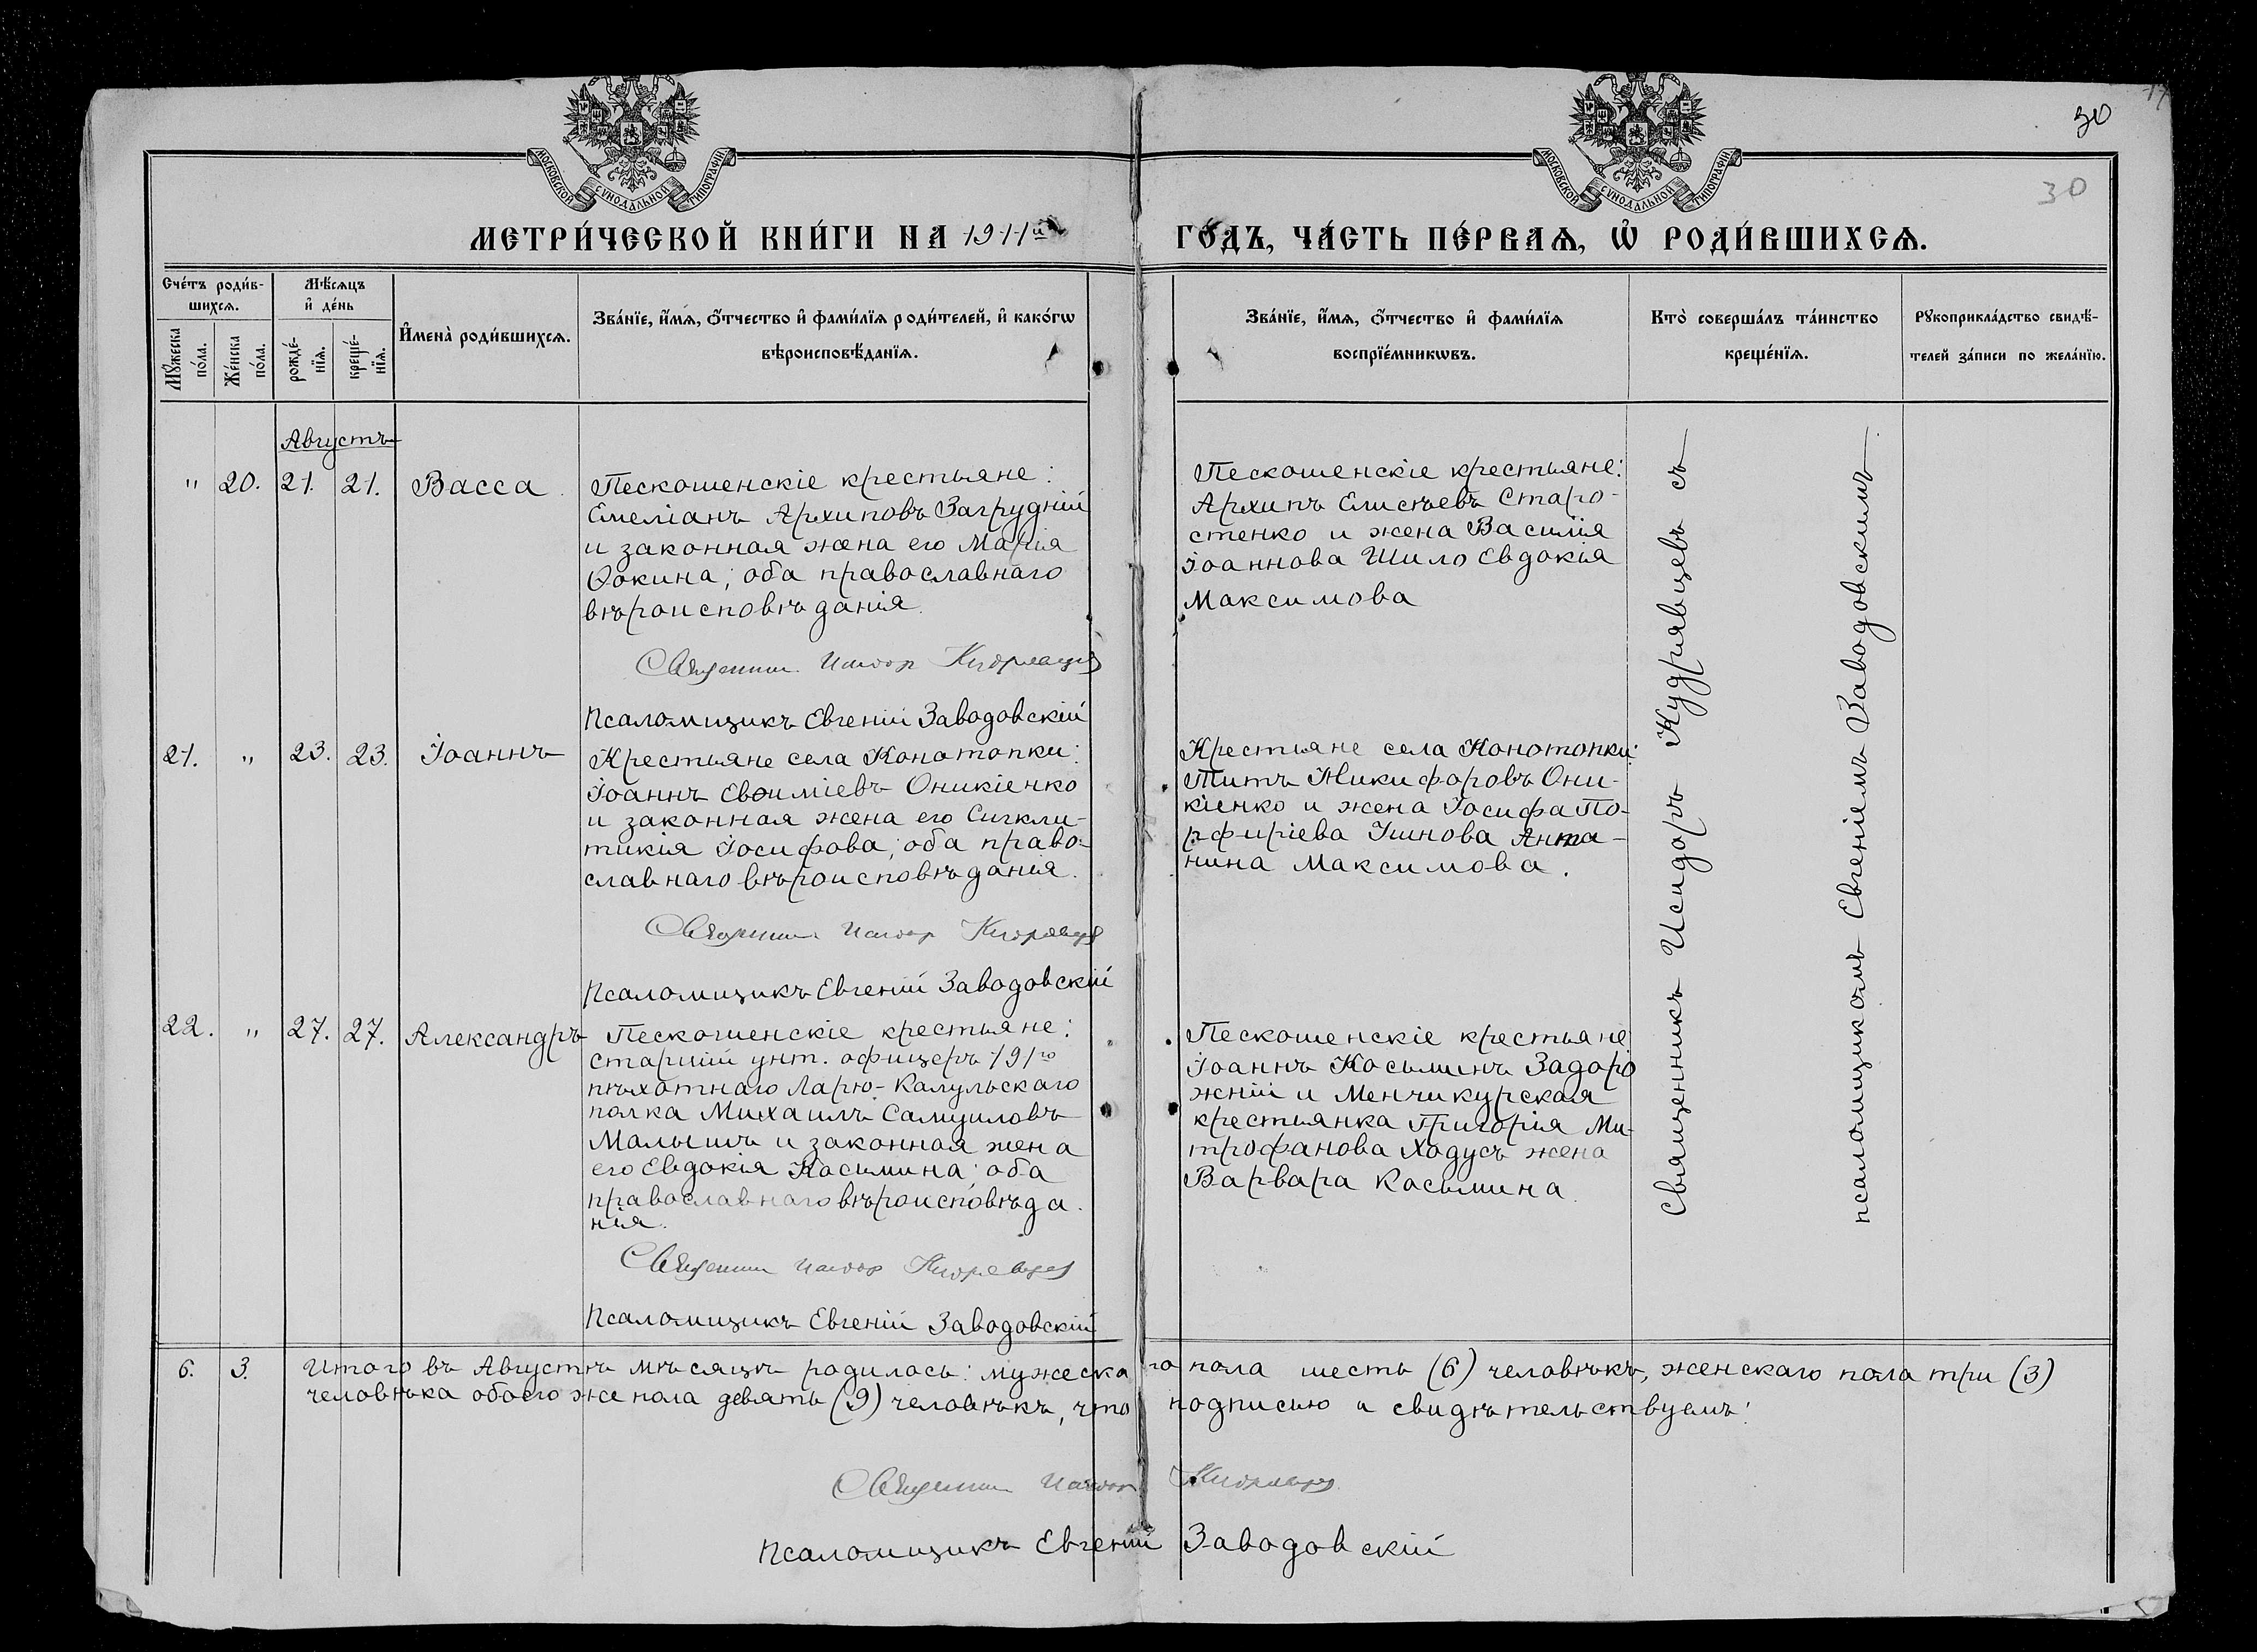 МОСКОВСКОЙ СѴНОДАЛЬНОЙ ТИПОГРАФІИ.
МОСКОВСКОЙ СѴНОДАЛЬНОЙ ТИПОГРАФІИ.
30
30
МЕТРИ́ЧЕСКОЙ КНИ́ГИ НА 1911й
ГО́ДЪ, ЧА́СТЬ ПЕ́РВАѦ, Ѽ РОДИ́ВШИХСѦ.
Сче́тъ роди́в-
шихсѧ.
Мꙋ́жеска
по́ла.
Же́нска
по́ла.
Мѣ́сѧцъ
и҆ де́нь
рожде́-
нїѧ.
креще́-
нїѧ.
И҆мена̀ роди́вшихсѧ.
Зва́нїе, и҆́мѧ, ѻ҆́тчество и҆ фами́лїѧ роди́телей, и҆ како́гѡ
вѣроисповѣ́данїѧ.
Зва́нїе, и҆́мѧ, ѻ҆́тчество и҆ фами́лїѧ
воспрїе́мникѡвъ.
Кто̀ соверша́лъ та́инство
креще́нїѧ.
Рꙋкоприкла́дство свидѣ́-
телей за́писи по жела́нїю.
Августъ
" 20. 21. 21. Васса.
Пескошенскіе крестьяне:
Емеліанъ Архиповъ Загрудній
и законная жена его Марія
Ѳокина; оба православнаго
вѣроисповѣданія.
Священник Исидор Кудрявцев
Псаломщикъ Евгеній Заводовскій
Пескошенскіе крестьяне:
Архипъ Елисѣевъ Старо-
стенко и жена Василія
Іоаннова Шило Евдокія
Максимова
21. " 23. 23. Іоаннъ
Крестьяне села Конотопки:
Іоаннъ Евѳиміевъ Оникіенко
и законная жена его Сигкли-
тикія Іосифова; оба право-
славнаго вѣроисповѣданія.
Священник Исидор Кудрявцев
Псаломщикъ Евгеній Заводовскій
Крестьяне села Конотопки:
Титъ Никифоровъ Они-
кіенко и жена Іосифа По-
рфиріева Антo-
нина Максимова.
22. " 27. 27. Александръ
Пескошенскіе крестьяне:
старшій унт. офицеръ 191го
пѣхотнаго Ларго-Кагульскаго
полка Михаилъ Самуиловъ
Малышъ и законная жена
его Евдокія Косьмина; оба
православнаго вѣроисповѣда.
нія.
Священник Исидор Кудрявцев
Псаломщикъ Евгеній Заводовскій
Пескошенскіе крестьяне
Іоаннъ Косьминъ Задоро
жній и Менчикурская
крестьянка Григорія Ми-
трофанова Ходусъ жена
Варвара Косьмина.
Священникъ Исидоръ Кудрявцевъ съ
псаломщикомъ Евгеніемъ Заводовскимъ.
6. 3. Итого въ Августѣ мѣсяцѣ родилось: мужескаго пола шесть (6) человѣкъ, женскаго пола три (3)
человѣка обоего же пола девять (9) человѣкъ, что подписью и свидѣтельствуемъ:
Священник Исидор Кудрявцев
Псаломщикъ Евгеній Заводовскій